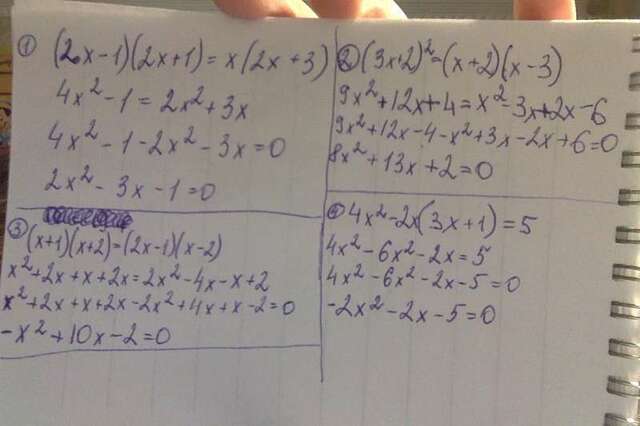 ① (2x-1)(2x+1)=x(2x+3)
4x²-1=2x²+3x
4x²-1-2x²-3x=0
2x²-3x-1=0
② (3x+2)²=(x+2)(x-3)
9x²+12x+4=x²-3x+2x-6
9x²+12x-4-x²+3x-2x+6=0
8x²+13x+2=0
③ (x+1)(x+2)=(2x-1)(x-2)
x²+2x+x+2x=2x²-4x-x+2
x²+2x+x+2x-2x²+4x+x-2=0
-x²+10x-2=0
④ 4x²-2x(3x+1)=5
4x²-6x²-2x=5
4x²-6x²-2x-5=0
-2x²-2x-5=0